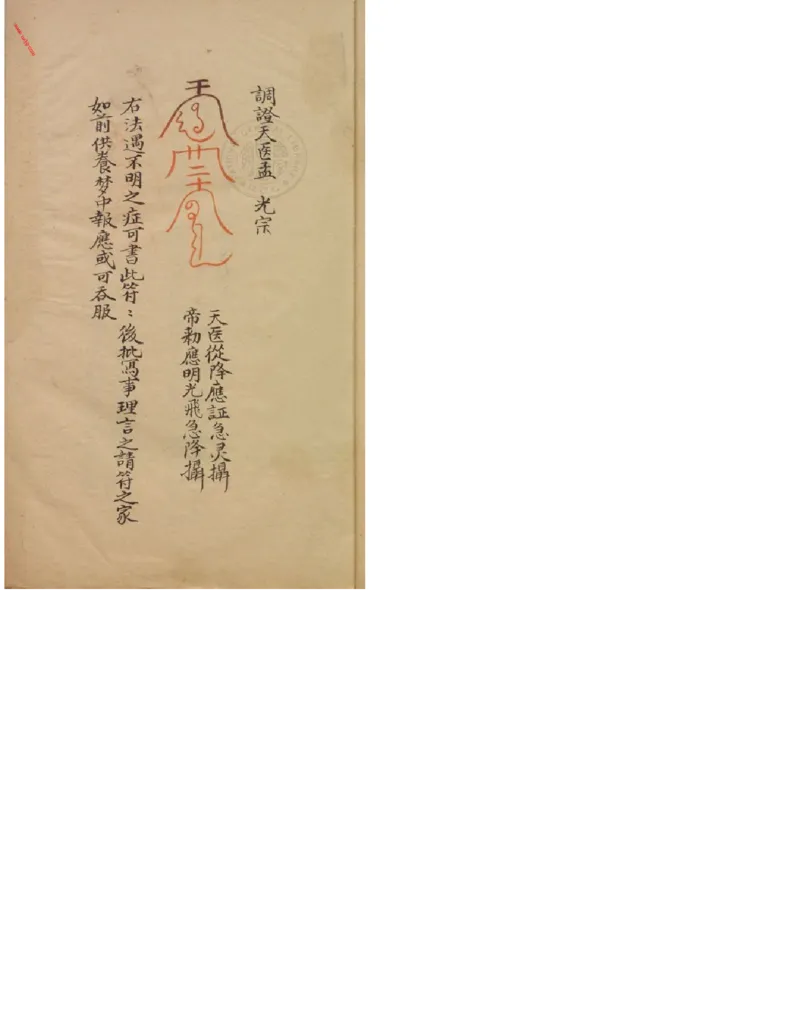 調證天医孟 光宗
天医從降應証急灵攝
帝勅應明光飛急降攝
右法遇不明之症可書此符：後批寫事理言之請符之家
如前供養梦中報應或可吞服